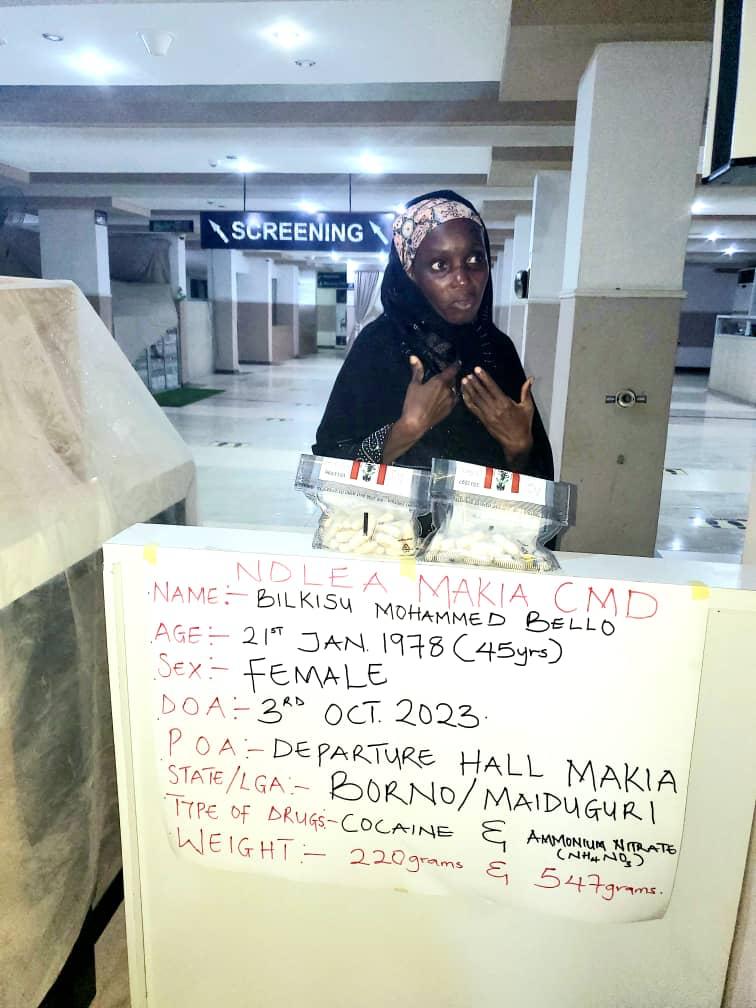 SCREENING
NDLEA MAKIA CMD
NAME:- BILKISU MOHAMMED BELLO
AGE:- 21ST JAN. 1978 (45yrs)
SEX:- FEMALE
DOA:- 3RD OCT. 2023.
POA:- DEPARTURE HALL MAKIA
STATE/LGA:- BORNO/MAIDUGURI
TYPE OF DRUGS:- COCAINE & AMMONIUM NITRATE
(NH4NO3)
WEIGHT:- 220grams & 547grams.